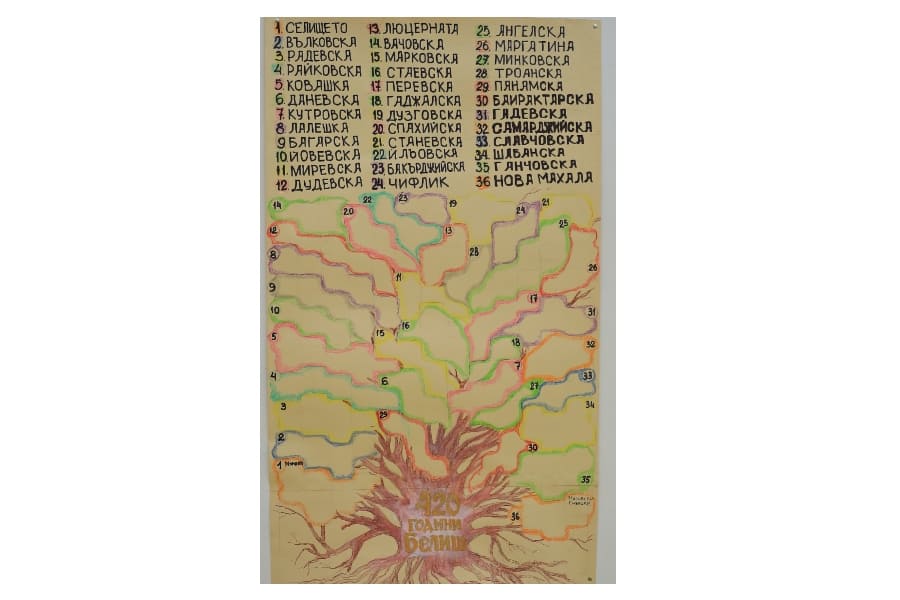 1. СЕЛИЩЕТО
2. ВЪЛКОВСКА
3. РАДЕВСКА
4. РАЙКОВСКА
5 КОВАШКА
6. ДАНЕВСКА
7 КУТРОВСКА
8 ЛАЛЕШКА
9 БАГАРСКА
10 ЙОВЕВСКА
11. МИРЕВСКА
12. ДУДЕВСКА
13. ЛЮЦЕРНАТА
14. ВАЧОВСКА
15. МАРКОВСКА
16 СТАЕВСКА
17 ПЕРЕВСКА
18. ГАДЖАЛСКА
19 ДУЗГОВСКА
20 СПАХИЙСКА
21. СТАНЕВСКА
22. ИЛЬОВСКА
23 БАКЪРДЖИЙСКА
24. ЧИФЛИК
25 АНГЕЛСКА
26. МАРГАТИНА
27 МИНКОВСКА
28 ТРОАНСКА
29. ПАНАМСКА
30 БАИРАКТАРСКА
31 ГАДЕВСКА
32 САМАРДЖИЙСКА
33 СЛАВЧОВСКА
34. ШАБАНСКА
35 ГАНЧОВСКА
36 НОВА МАХАЛА
14
22
23
19
24
21
20
12
13
25
8
28
26
11
9
17
10
31
16
15
5
18
32
7
4
6
27
33
3
29
34
2
30
1
35
36
420
ГОДИНИ